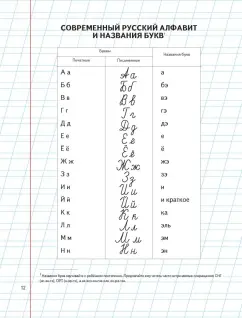 СОВРЕМЕННЫЙ РУССКИЙ АЛФАВИТ
И НАЗВАНИЯ БУКВ
Буквы Название букв
Печатные Письменные
А а А а а
Б б Б б бэ
В в В в вэ
Г г Г г гэ
Д д Д д дэ
Е е Е е е
Ё ё Ё ё ё
Ж ж Ж ж жэ
З з З з зэ
И и И и и
Й й Й й и краткое
К к К к ка
Л л Л л эль
М м М м эм
Н н Н н эн
12